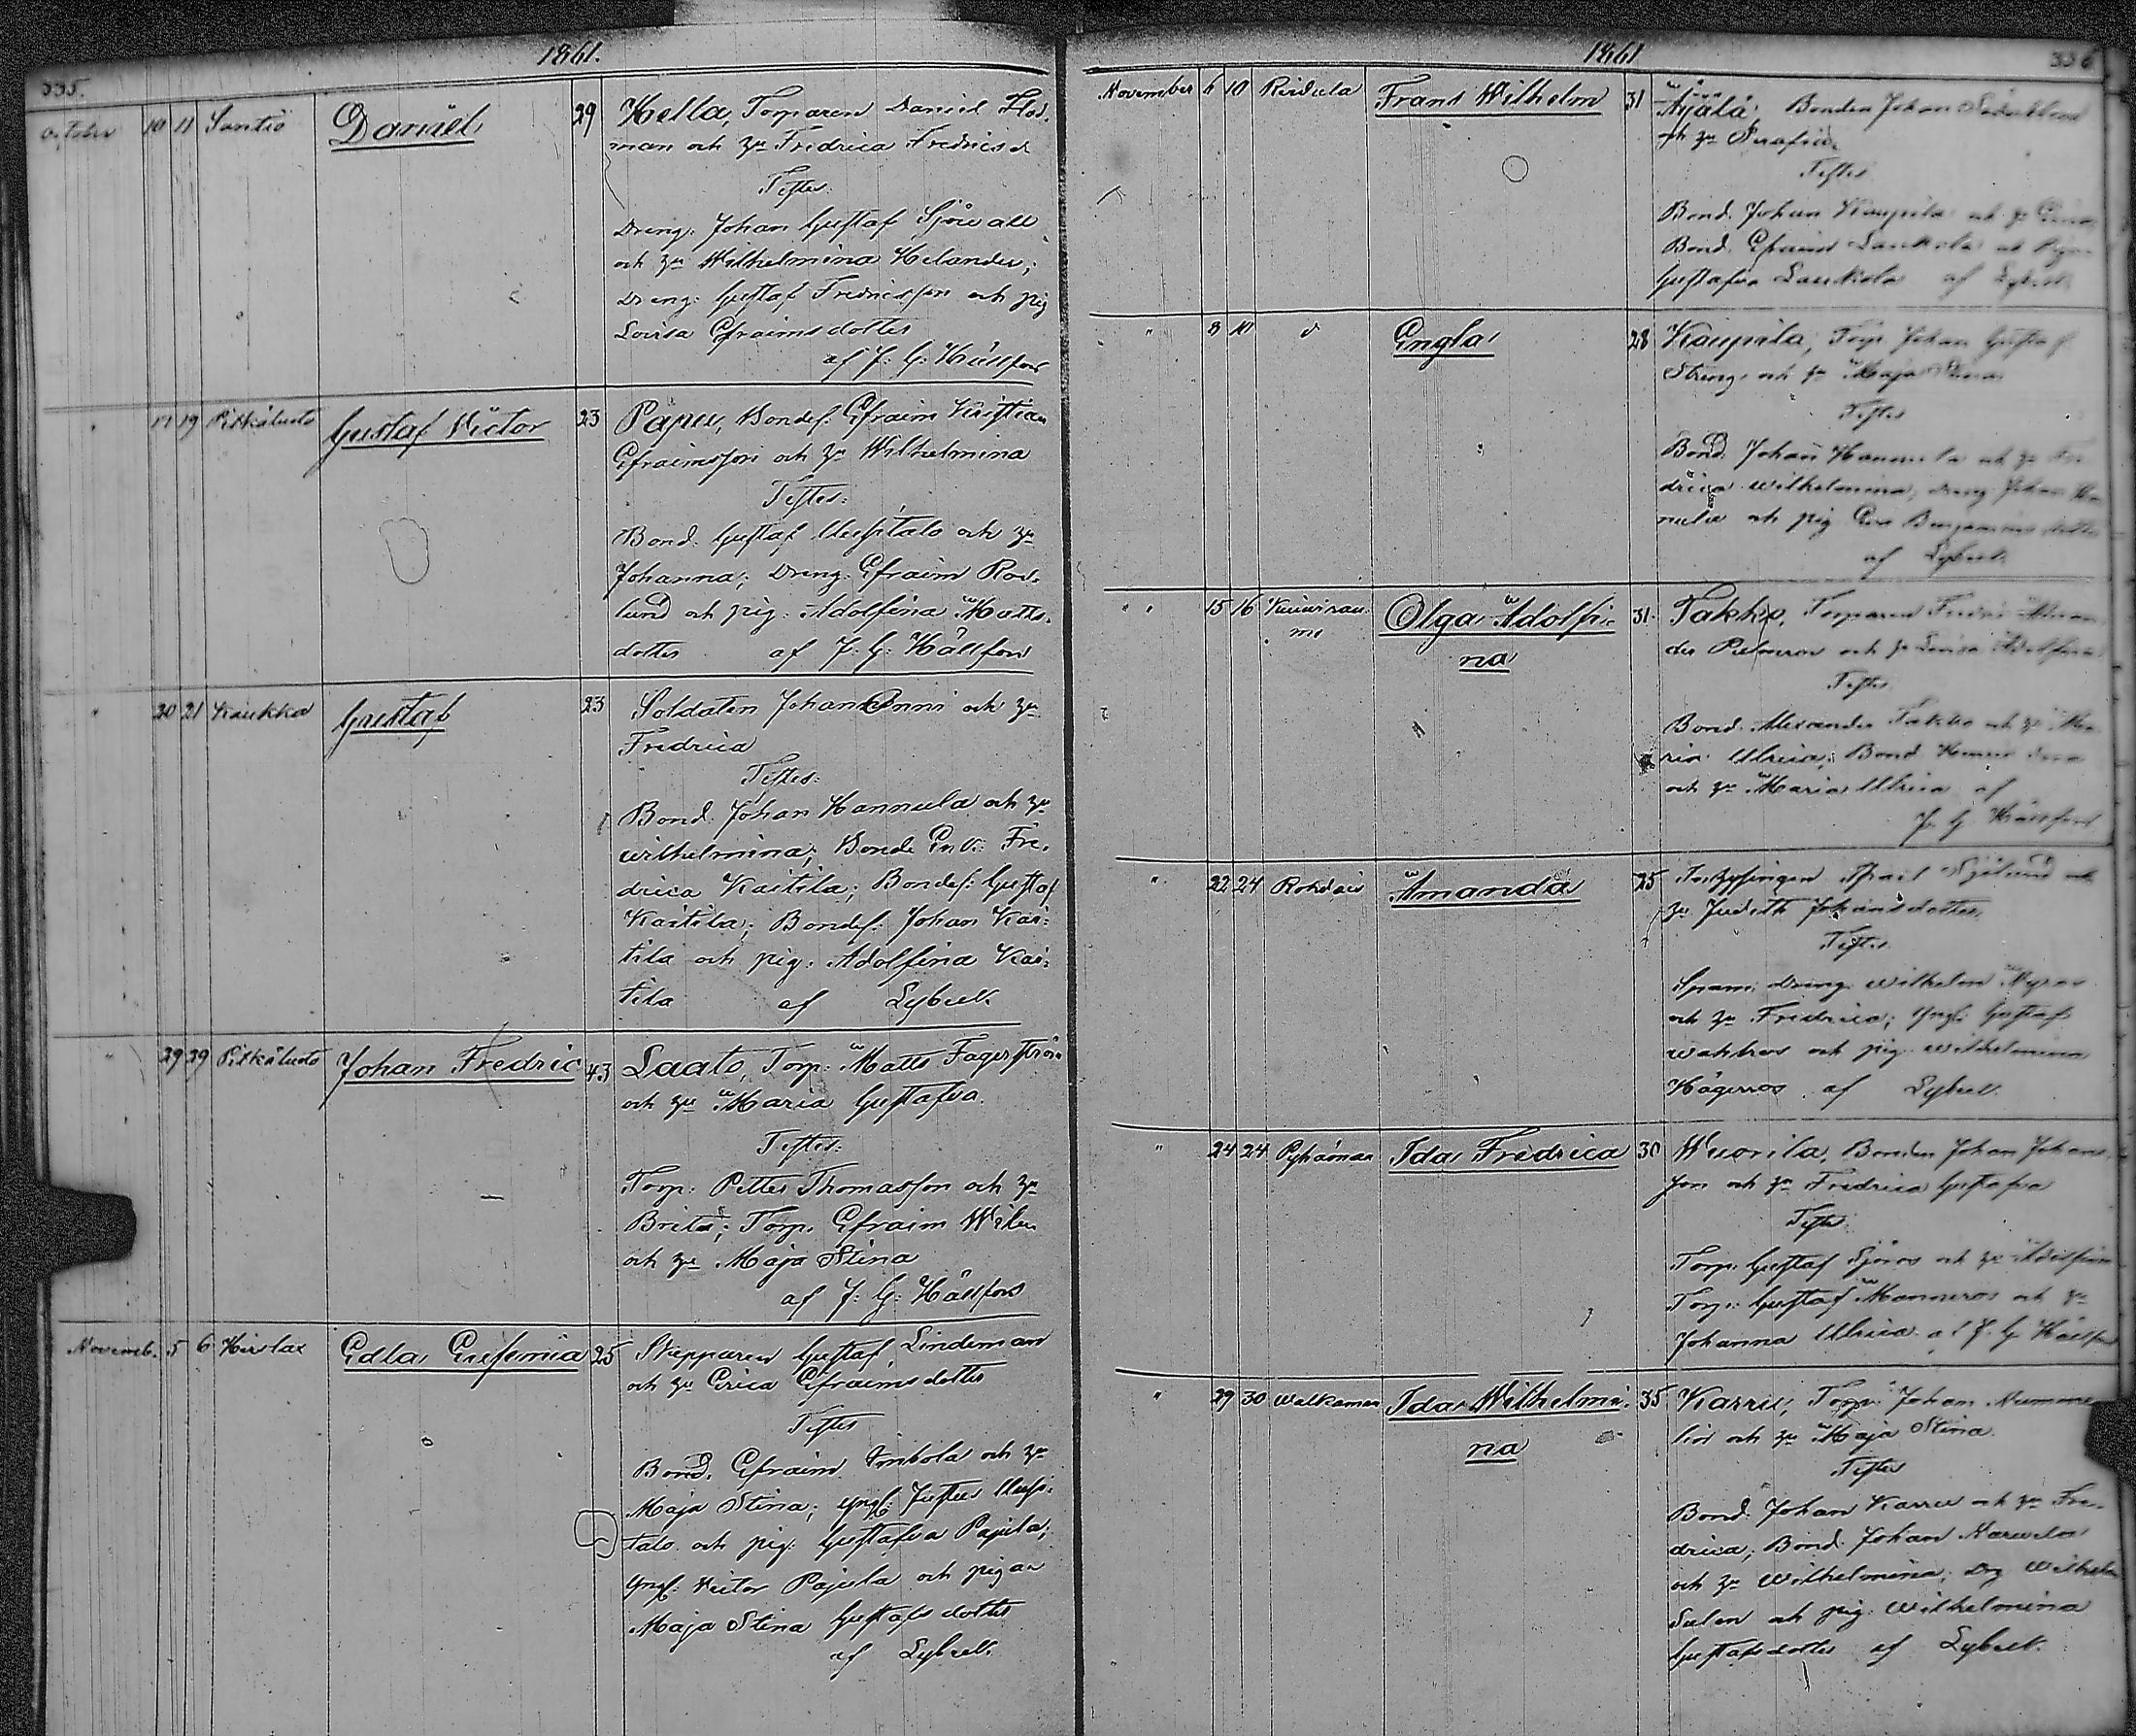 1861.
335.
October 10 11 Santio Daniel 29 Hella, Torparen Daniel Flod-
man och Hu Fredrica Fredricsd
Testes:
Dreng: Johan Gustaf Sjövall
och Hu Wilhelmina Helander;
Dreng: Gustaf Fredricsson och pig
Lovisa Efraimsdotter
af J. G. Hällfors
" 17 19 Pitkäluoto Gustaf Victor 23 Papu, Bondes. Efraim Kristian
Efraimsson och Hu Wilhelmina
Testes:
Bond. Gustaf Uusitalo och Hu
Johanna; Dreng: Efraim Ros-
lund och pig: Adolfina Matts-
dotter af J. G. Hällfors
" 20 21 Kaukka Gustaf 23 Soldaten Johan Onni och Hu
Fredrica
Testes:
Bond. Johan Hannula och Hu
Wilhelmina; Bonde Enk: Fre-
drica Kaitila; Bondes: Gustaf
Kaitila; Bondes: Johan Kai-
tila och pig: Adolfina Kai-
tila af Lybeck
" 29 29 Pitkäluoto Johan Fredric 43 Laato, Torp: Matts Fagerström
och Hu Maria Gustafva.
Testes:
Torp: Petter Thomasson och Hu
Brita; Torp. Efraim Wilen
och Hu Maja Stina
af J. G. Hällfors
Novemb. 5 6 Hirslax Edla Eufemia 25 Skepparen Gustaf Lindeman
och Hu Erica Efraimsdotter
Testes
Bond. Efraim Imbola och Hu
Maja Stina; Yngl: Justus Uusi-
talo och pig: Gustafva Pajula;
Yngl: Victor Pajula och pigan
Maja Stina Gustafsdotter
af Lybeck.
1861
336
November 6 10 Frans Wilhelm 31 Äijälä, Bonden Johan
och Hu Serafia
Testes
Bond. Johan Kaupila och Hu
Bond. Efraim Laukola och
Gustafva Laukola af Lybeck
" 8 10 d Engla 28 Kaupila, Torp Johan Gustaf
Streng och Hu Maja Stina
Testes
Bond. Johan Hannula och Hu Fre-
drica Wilhelmina, Dreng Johan Han-
nula och pig Eva Benjaminsdotter
af Lybeck
" 15 16 Olga Adolfi- 31 Takko, Torparen
och Hu Lovisa Adolfina
na
Testes
Bond. Alexander Takko och Hu Ma-
ria Ulrica; Bond
och Hu Maria Ulrica af
J. G. Hällfors
" 22 24 Rohdais Amanda 25 Sjölund och
Hu Judith Johansdotter
Testes
Dreng Wilhelm Nyroos
och Hu Fredrica; Yngl: Gustaf
och pig: Wilhelmina
Hägerroos af Lybeck
" 24 24 Pyhämaa Ida Fredrica 30 Wuorila, Bonden Johan Johans-
son och Hu Fredrica Gustafva
Testes
Torp: Gustaf Sjöroos och Hu Adolfina
Torp: Gustaf Manneroos och Hu
Johanna Ulrica af J. G. Hällfors
" 29 30 Walkamaa Ida Wilhelmi- 35 Karru, Torp: Johan Numme-
lin och Hu Maja Stina
na
Testes
Bond. Johan Karru och Hu Fre-
drica; Bond. Johan Marvela
och Hu Wilhelmina; Drg Wilhelm
Salen och pig: Wilhelmina
Gustafsdotter af Lybeck.